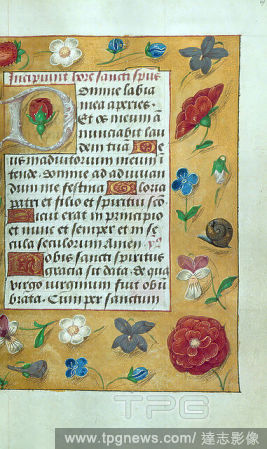 Incipiunt hore sancti spus
Domine labia
mea aperies.
Et os meum a
nunciabit lau
dem tuã De
us in adiutorium meum in
tende. Domine ad adiuvan
dum me festina Gloria
patri et filio et spiritui scõ
Sicut erat in principio
et nunc et semper et in se
cula seculorum Amen.
Nobis sancti spiritus
gracia sit data. de qua
virgo virginum fuit obũ
brata. Cum per sanctum
TPG
www.tpgnews.com / 達志影像